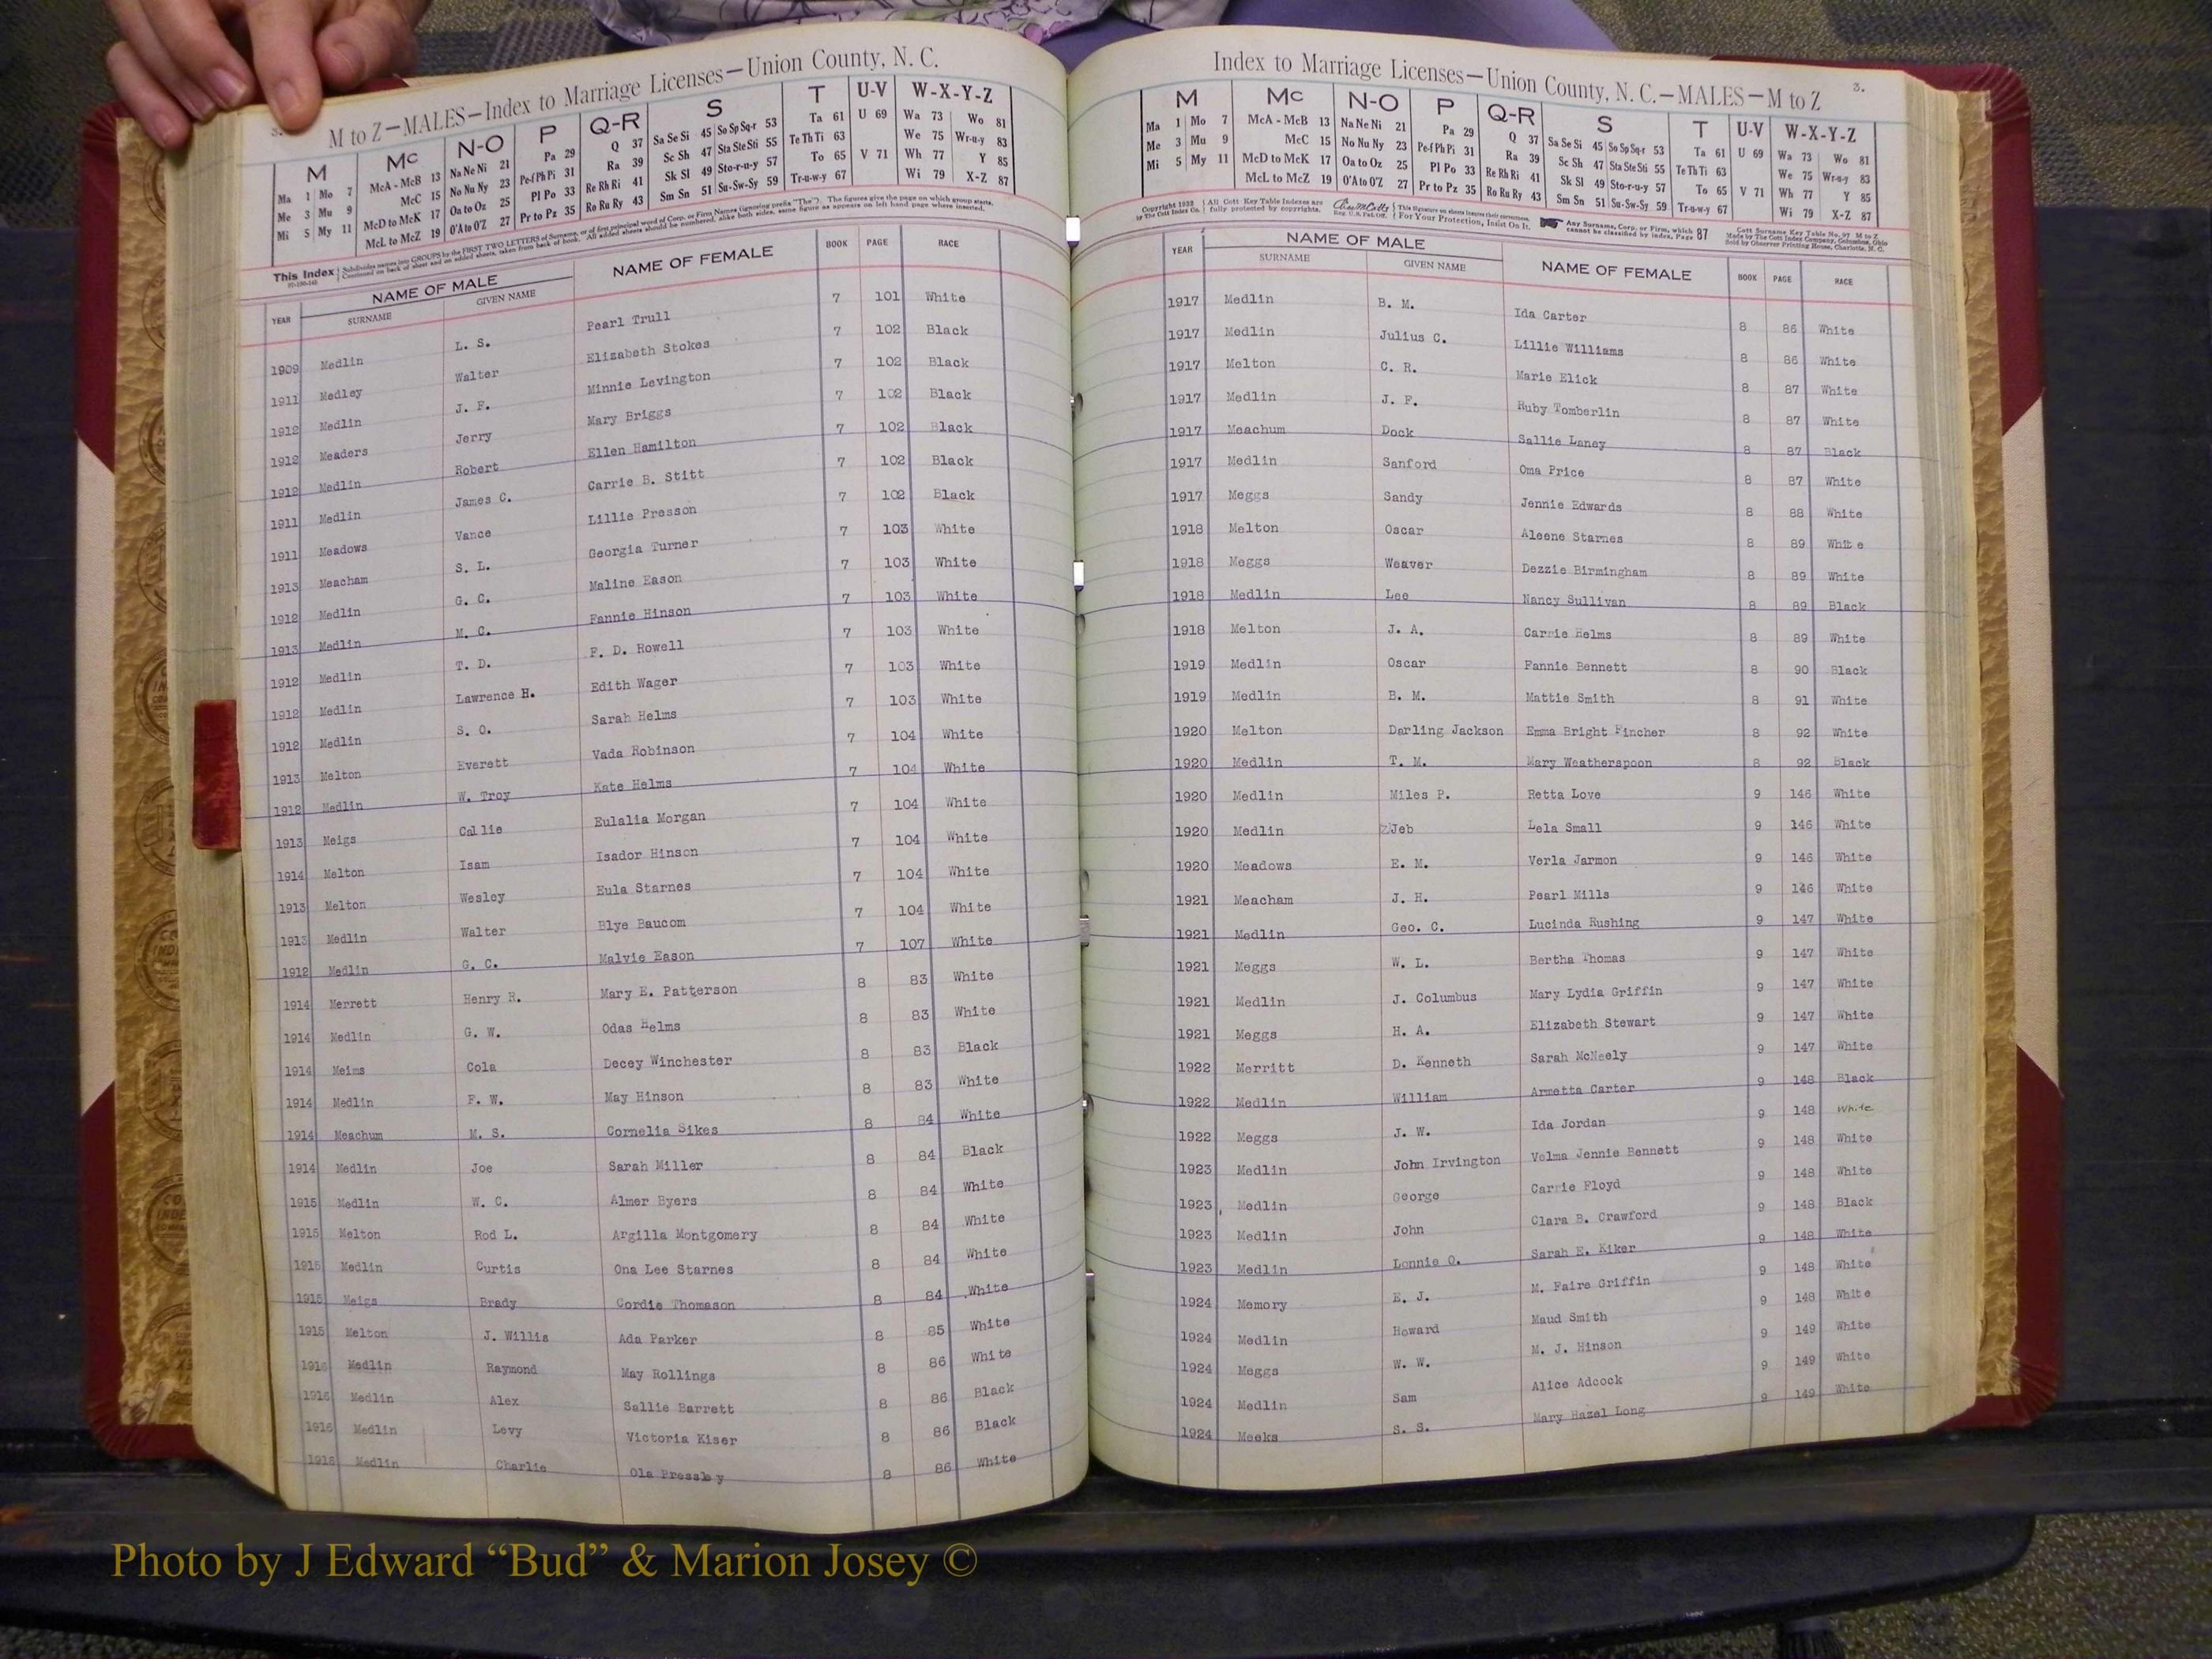 3.
M to Z—MALES—Index to Marriage Licenses—Union County, N. C.
M Mc N-O P Q-R S T U-V W-X-Y-Z
Ma 1 Mo 7 McA - McB 13 Na Ne Ni 21 Pa 29 Q 37 Sa Se Si 45 So Sp Sq-r 53 Ta 61 U 69 Wa 73 Wo 81
Me 3 Mu 9 McC 15 No Nu Ny 23 Pe-f Ph Pi 31 Ra 39 Sc Sh 47 Sta Ste Sti 55 Te Th Ti 63 We 75 Wr-u-y 83
Mi 5 My 11 McD to McK 17 Oa to Oz 25 Pl Po 33 Re Rh Ri 41 Sk Sl 49 Sto-r-u-y 57 To 65 V 71 Wh 77 Y 85
McL to McZ 19 O'A to O'Z 27 Pr to Pz 35 Ro Ru Ry 43 Sm Sn 51 Su-Sw-Sy 59 Tr-u-w-y 67 Wi 79 X-Z 87
This Index Subdivides names into GROUPS by the FIRST TWO LETTERS of Surname, or of first principal word of Corp. or Firm Names (ignoring prefix "The"). The figures give the page on which group starts.
Continued on back of sheet and on added sheets, taken from back of book. All added sheets should be numbered, alike both sides, same figure as appears on left hand page where inserted.
YEAR NAME OF MALE SURNAME GIVEN NAME NAME OF FEMALE BOOK PAGE RACE
1909 Medlin L. S. Pearl Trull 7 101 White
1911 Medley Walter Elizabeth Stokes 7 102 Black
1912 Medlin J. F. Minnie Levington 7 102 Black
1912 Meaders Jerry Mary Briggs 7 102 Black
1912 Medlin Robert Ellen Hamilton 7 102 Black
1911 Medlin James C. Carrie B. Stitt 7 102 Black
1911 Meadows Vance Lillie Presson 7 102 Black
1913 Meacham S. L. Georgia Turner 7 103 White
1912 Medlin G. C. Maline Eason 7 103 White
1913 Medlin M. C. Fannie Hinson 7 103 White
1912 Medlin T. D. F. D. Rowell 7 103 White
1912 Medlin Lawrence H. Edith Wager 7 103 White
1912 Medlin S. O. Sarah Helms 7 103 White
1913 Melton Everett Vada Robinson 7 104 White
1912 Medlin W. Troy Kate Helms 7 104 White
1913 Meigs Callie Eulalia Morgan 7 104 White
1914 Melton Isam Isador Hinson 7 104 White
1913 Melton Wesley Eula Starnes 7 104 White
1913 Medlin Walter Blye Baucom 7 104 White
1912 Medlin G. C. Malvie Eason 7 107 White
1914 Merrett Henry R. Mary E. Patterson 8 83 White
1914 Medlin G. W. Odas Helms 8 83 White
1914 Meims Cola Decey Winchester 8 83 Black
1914 Medlin F. W. May Hinson 8 83 White
1914 Meachum M. S. Cornelia Sikes 8 84 White
1914 Medlin Joe Sarah Miller 8 84 Black
1915 Medlin W. C. Almer Byers 8 84 White
1915 Melton Rod L. Argilla Montgomery 8 84 White
1915 Medlin Curtis Ona Lee Starnes 8 84 White
1915 Meigs Brady Cordie Thomason 8 84 White
1915 Melton J. Willis Ada Parker 8 85 White
1916 Medlin Raymond May Rollings 8 86 White
1916 Medlin Alex Sallie Barrett 8 86 Black
1916 Medlin Levy Victoria Kiser 8 86 Black
1916 Medlin Charlie Ola Pressley 8 86 White
Index to Marriage Licenses—Union County, N. C.—MALES—M to Z
3.
M Mc N-O P Q-R S T U-V W-X-Y-Z
Ma 1 Mo 7 McA - McB 13 Na Ne Ni 21 Pa 29 Q 37 Sa Se Si 45 So Sp Sq-r 53 Ta 61 U 69 Wa 73 Wo 81
Me 3 Mu 9 McC 15 No Nu Ny 23 Pe-f Ph Pi 31 Ra 39 Sc Sh 47 Sta Ste Sti 55 Te Th Ti 63 We 75 Wr-u-y 83
Mi 5 My 11 McD to McK 17 Oa to Oz 25 Pl Po 33 Re Rh Ri 41 Sk Sl 49 Sto-r-u-y 57 To 65 V 71 Wh 77 Y 85
McL to McZ 19 O'A to O'Z 27 Pr to Pz 35 Ro Ru Ry 43 Sm Sn 51 Su-Sw-Sy 59 Tr-u-w-y 67 Wi 79 X-Z 87
Copyright 1932 by The Cott Index Co. All Cott Key Table Indexes are fully protected by copyrights. Reg. U.S. Pat. Off. For Your Protection, Insist On It. Any Surname, Corp. or Firm, which cannot be classified by index, Page 87 Cott Surname Key Table No. 97 M to Z
Made by The Cott Index Company, Columbus, Ohio
Sold by Observer Printing House, Charlotte, N. C.
YEAR NAME OF MALE SURNAME GIVEN NAME NAME OF FEMALE BOOK PAGE RACE
1917 Medlin B. M. Ida Carter 8 86 White
1917 Medlin Julius C. Lillie Williams 8 86 White
1917 Melton C. R. Marie Elick 8 87 White
1917 Medlin J. F. Ruby Tomberlin 8 87 White
1917 Meachum Dock Sallie Laney 8 87 Black
1917 Medlin Sanford Oma Price 8 87 White
1917 Meggs Sandy Jennie Edwards 8 88 White
1918 Melton Oscar Aleene Starnes 8 89 White
1918 Meggs Weaver Dezzie Birmingham 8 89 White
1918 Medlin Lee Nancy Sullivan 8 89 Black
1918 Melton J. A. Carrie Helms 8 89 White
1919 Medlin Oscar Fannie Bennett 8 90 Black
1919 Medlin B. M. Mattie Smith 8 91 White
1920 Melton Darling Jackson Emma Bright Fincher 8 92 White
1920 Medlin T. M. Mary Weatherspoon 8 92 Black
1920 Medlin Miles P. Retta Love 9 146 White
1920 Medlin Jeb Lela Small 9 146 White
1920 Meadows E. M. Verla Jarmon 9 146 White
1921 Meacham J. H. Pearl Mills 9 146 White
1921 Medlin Geo. C. Lucinda Rushing 9 147 White
1921 Meggs W. L. Bertha Thomas 9 147 White
1921 Medlin J. Columbus Mary Lydia Griffin 9 147 White
1921 Meggs H. A. Elizabeth Stewart 9 147 White
1922 Merritt D. Kenneth Sarah McNeely 9 147 White
1922 Medlin William Armetta Carter 9 148 Black
1922 Meggs J. W. Ida Jordan 9 148 White
1923 Medlin John Irvington Velma Jennie Bennett 9 148 White
1923 Medlin George Carrie Floyd 9 148 White
1923 Medlin John Clara B. Crawford 9 148 Black
1923 Medlin Lonnie O. Sarah E. Kiker 9 148 White
1924 Memory E. J. M. Faire Griffin 9 148 White
1924 Medlin Howard Maud Smith 9 148 White
1924 Meggs W. W. M. J. Hinson 9 149 White
1924 Medlin Sam Alice Adcock 9 149 White
1924 Meeks S. S. Mary Hazel Long 9 149 White
Photo by J Edward “Bud” & Marion Josey ©